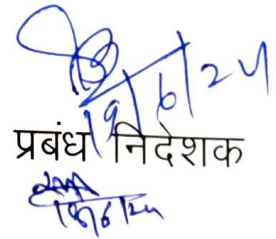 19/6/24
प्रबंध निदेशक
19/6/24